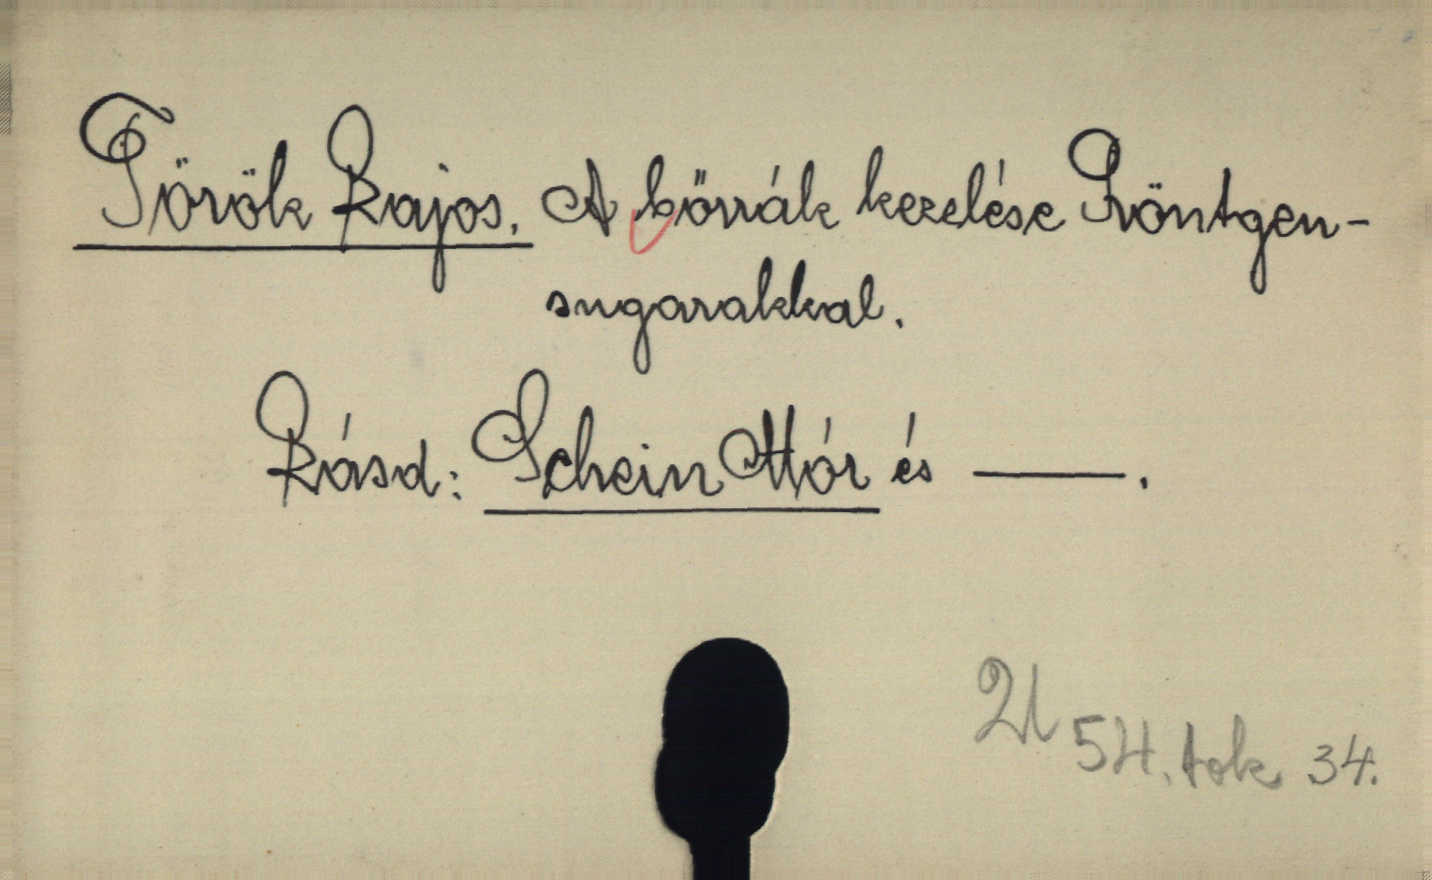 Török Lajos. A bőrrák kezelése Röntgen-
sugarakkal.
Lásd: Schein Mór és ——.
54. tok 34.